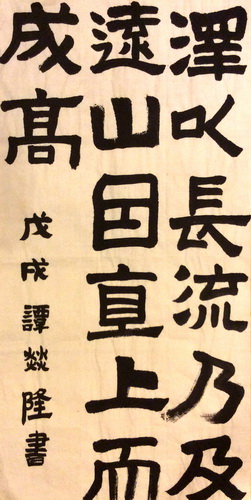 澤以長流乃及
遠山因直上而
成髙
戊戌譚燚隆書